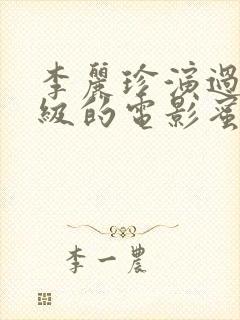 李麗珍演過
級的電影蜜
李一農